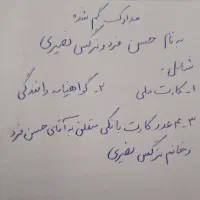 مدارک گم شده
به نام حسن فرد و نرگس نصیری
شامل:
۱- کارت ملی ۲- گواهینامه رانندگی
۳- ۴ عدد کارت بانکی متعلق به آقای حسن فرد
و خانم نرگس نصیری